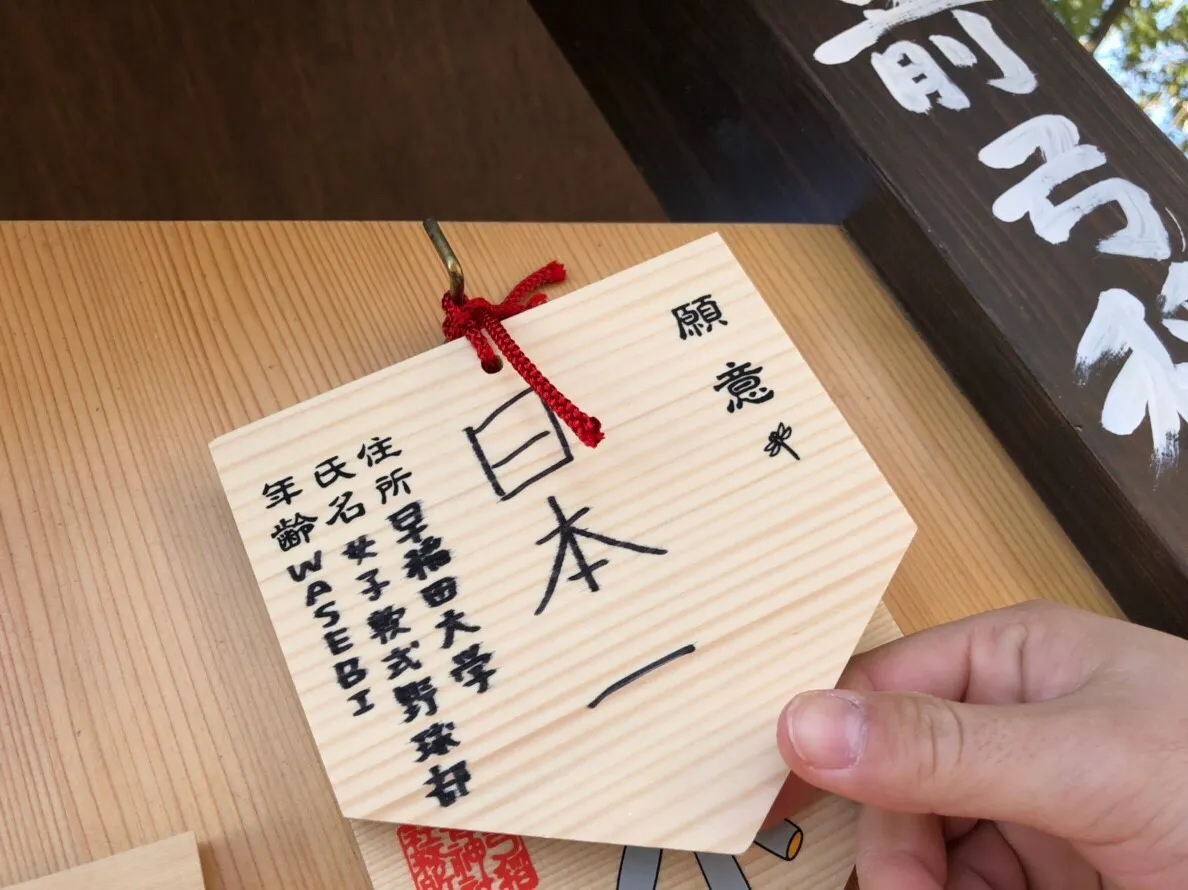 願意
日本一
住所 早稲田大学
氏名 女子軟式野球部
年齢 WASEBI
前弓